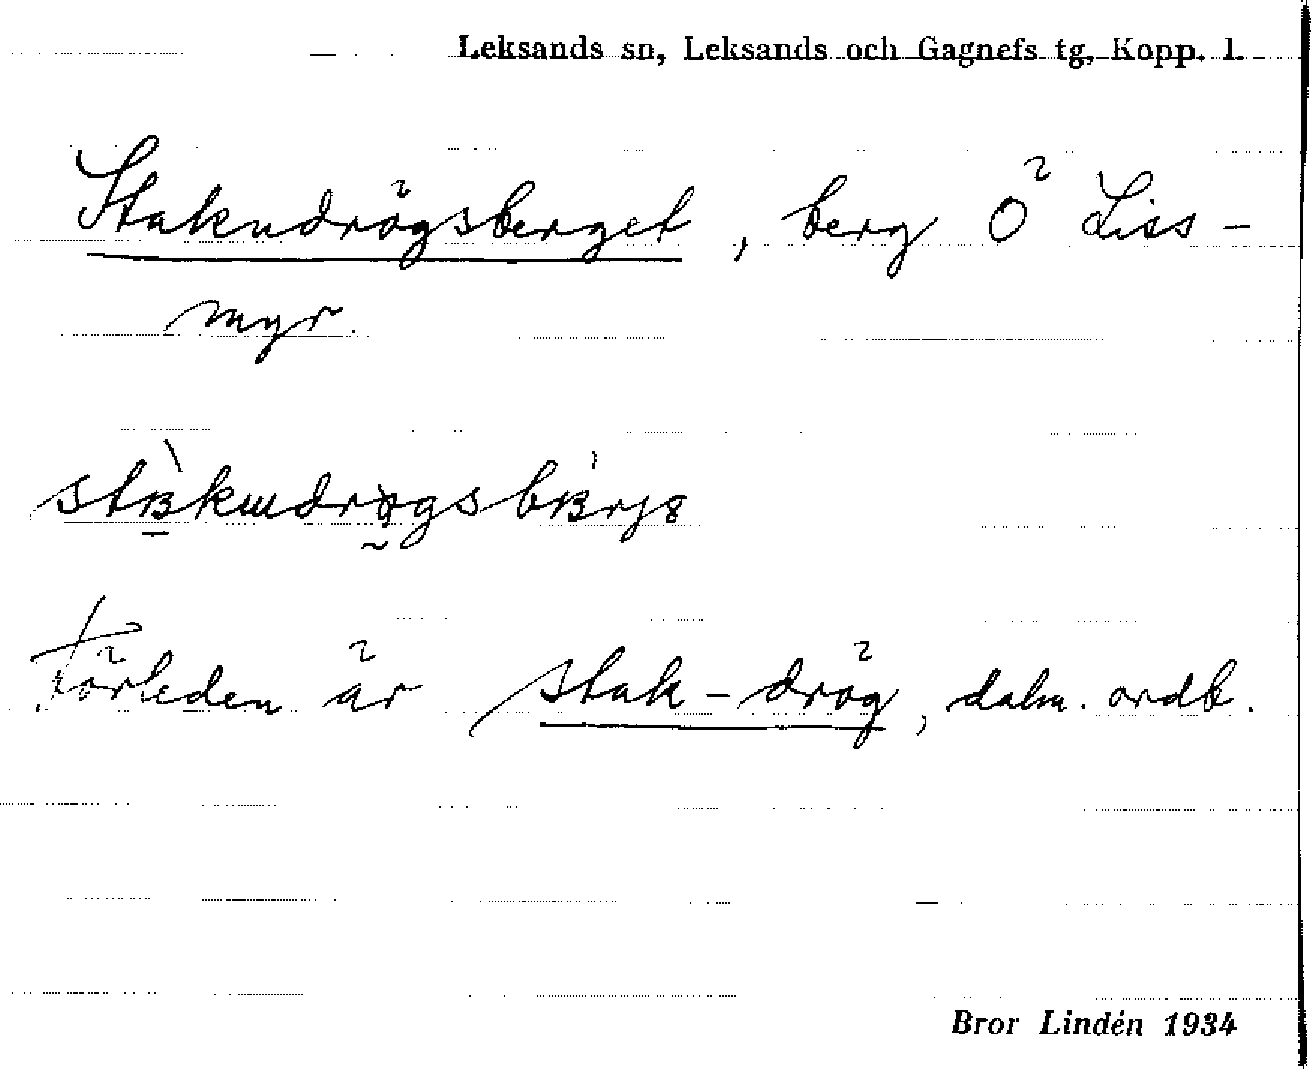 Leksands sn, Leksands och Gagnefs tg, Kopp. l.
Stakudrögsberget, berg Ö Liss-
myr.
Förleden är stak-drög, dalm. ordb.
Bror Lindén 1934